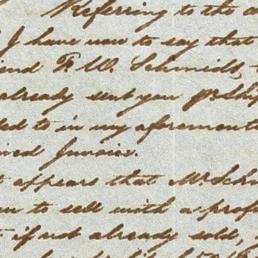 Referring to the
I have now to say that
F. W. Schmidt
already sent you pr Ship
to in my aforement
Invoice.
appears that Mr. Sch
to sell with a prof
if not already sold,